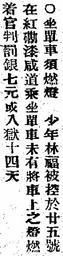 〇坐單車須燃燈　少年林福被控於廿五號
在紅磡漆咸道乘坐單車未有將車上之燈燃
着官判罰銀七元或入獄十四天